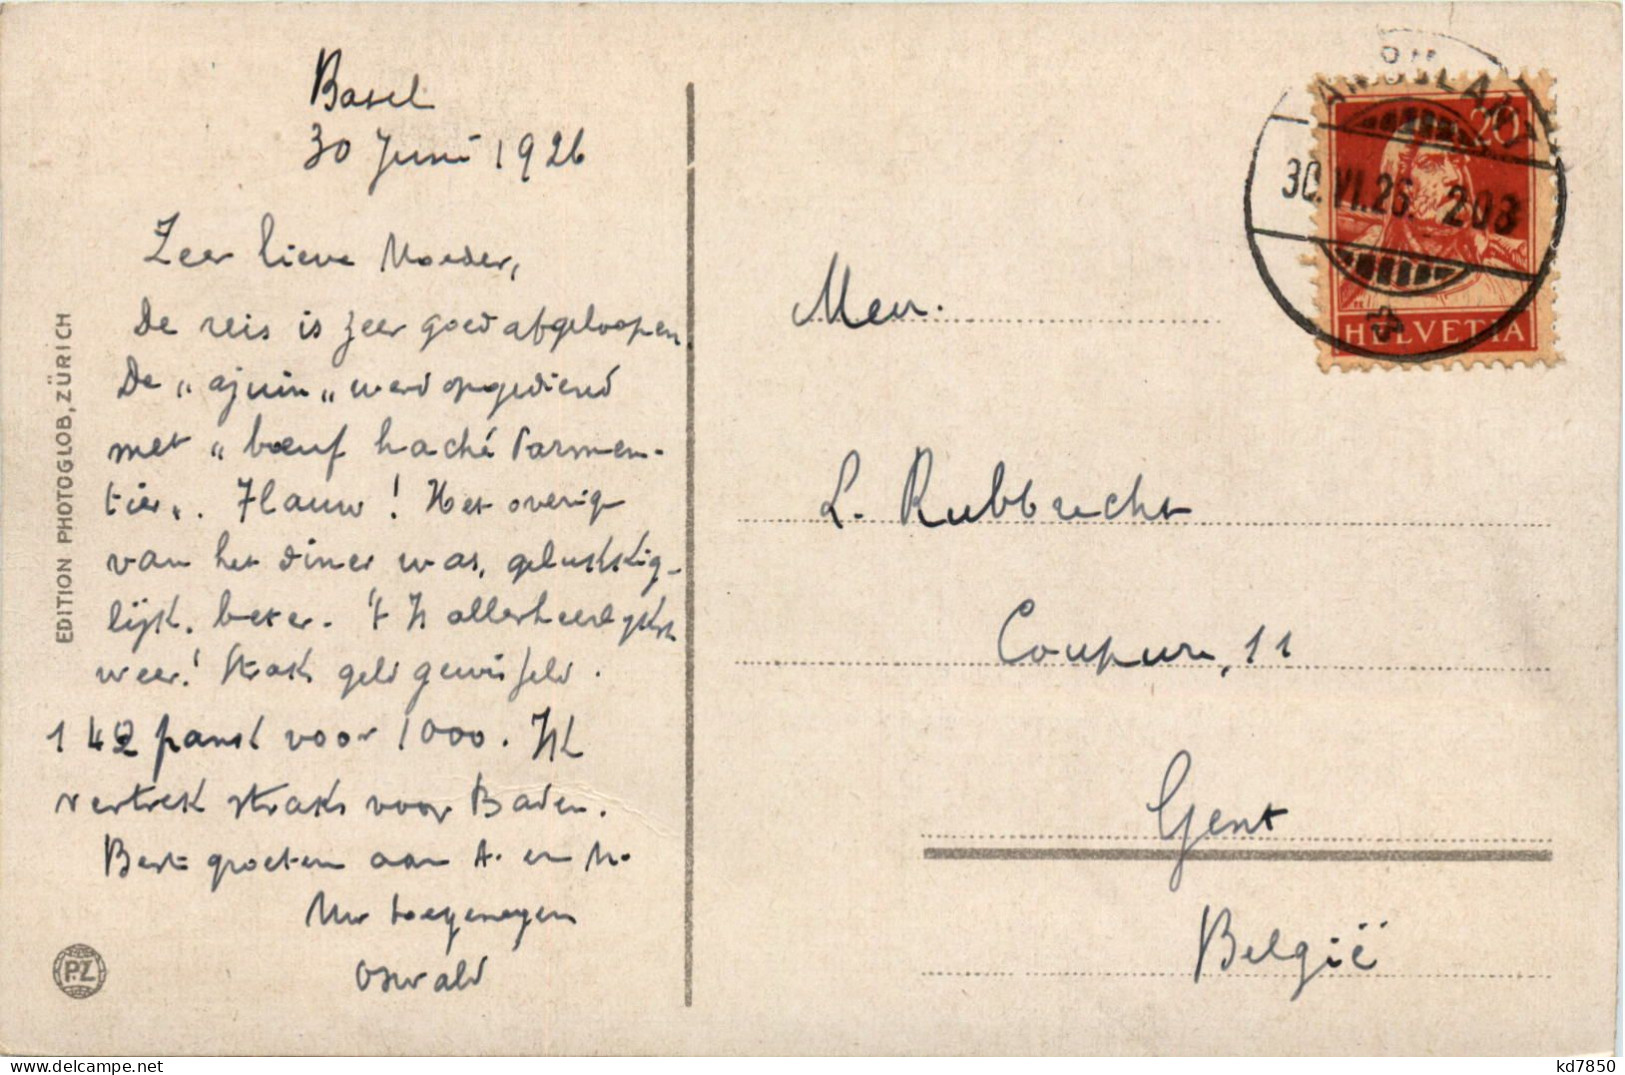 Basel
30 Juni 1926
Zeer lieve Moeder,
De reis is zeer goed afgeloopen.
De „ajuin„ werd opgediend
met „bœuf haché Parmen-
tier„. Flauw! Het overige
van het diner was, gelukkig-
lijk, beter. 't Is allerheerlijkst
weer! Straks geld gewisseld.
142 frank voor 1000. Ik
vertrek straks voor Baden.
Beste groeten aan A. en M.
Uw toegenegen
Oswald
EDITION PHOTOGLOB, ZÜRICH
P.Z
AMBULANT
30.VI.26. 203
20
HELVETIA
Mevr.
L. Rubbrecht
Coupure, 11
Gent
België
kd7850